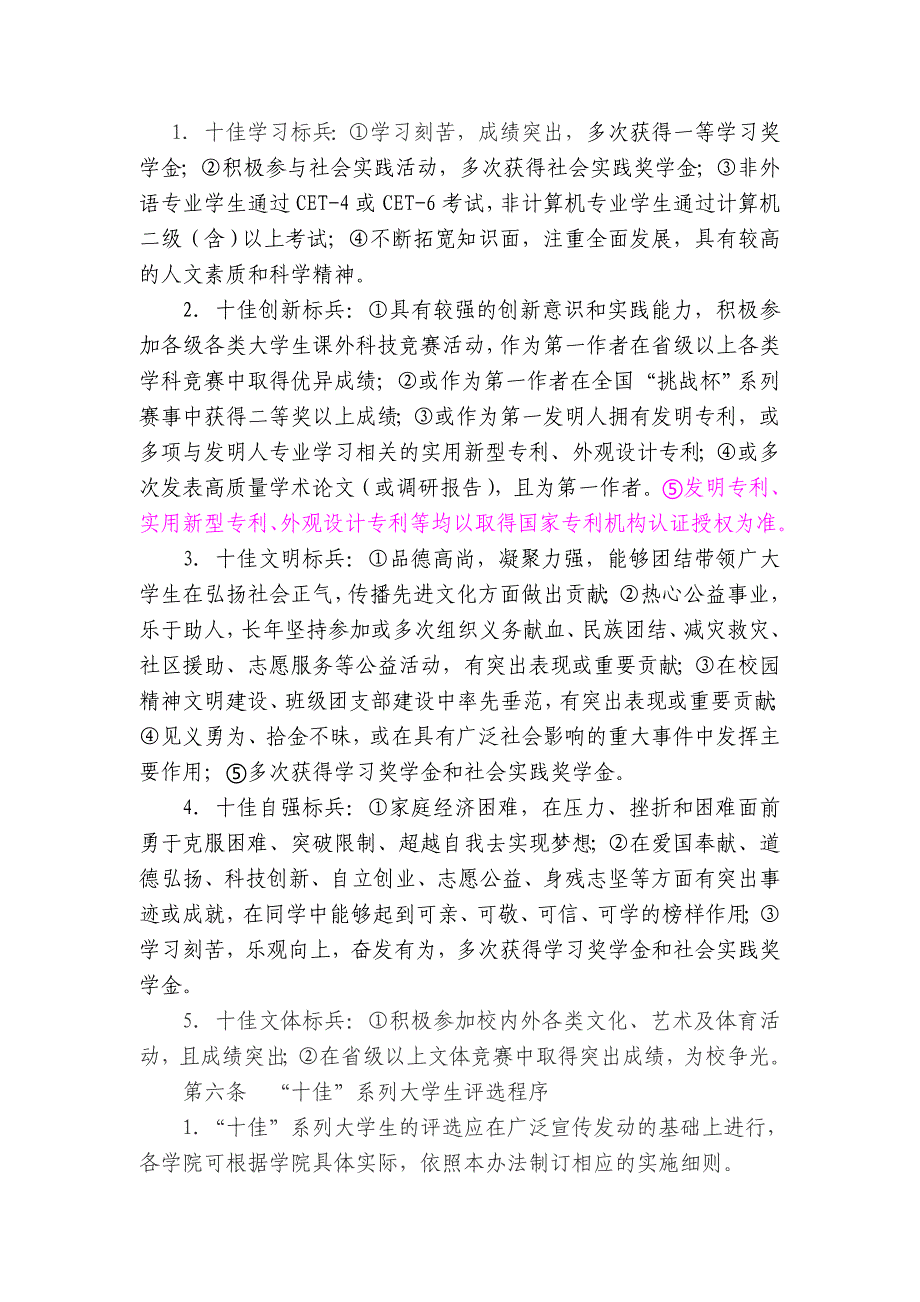 1. 十佳学习标兵: ①学习刻苦，成绩突出，多次获得一等学习奖
学金; ②积极参与社会实践活动，多次获得社会实践奖学金; ③非外
语专业学生通过 CET-4 或 CET-6 考试, 非计算机专业学生通过计算机
二级（含）以上考试; ④不断拓宽知识面，注重全面发展，具有较高
的人文素质和科学精神。
2. 十佳创新标兵: ①具有较强的创新意识和实践能力，积极参
加各级各类大学生课外科技竞赛活动, 作为第一作者在省级以上各类
学科竞赛中取得优异成绩; ②或作为第一作者在全国“挑战杯”系列
赛事中获得二等奖以上成绩; ③或作为第一发明人拥有发明专利，或
多项与发明人专业学习相关的实用新型专利、外观设计专利; ④或多
次发表高质量学术论文（或调研报告），且为第一作者。⑤发明专利、
实用新型专利、外观设计专利等均以取得国家专利机构认证授权为准。
3. 十佳文明标兵: ①品德高尚，凝聚力强，能够团结带领广大
学生在弘扬社会正气, 传播先进文化方面做出贡献; ②热心公益事业，
乐于助人, 长年坚持参加或多次组织义务献血、民族团结、减灾救灾、
社区援助、志愿服务等公益活动，有突出表现或重要贡献; ③在校园
精神文明建设、班级团支部建设中率先垂范, 有突出表现或重要贡献;
④见义勇为、拾金不昧，或在具有广泛社会影响的重大事件中发挥主
要作用; ⑤多次获得学习奖学金和社会实践奖学金。
4. 十佳自强标兵: ①家庭经济困难，在压力、挫折和困难面前
勇于克服困难、突破限制、超越自我去实现梦想; ②在爱国奉献、道
德弘扬、科技创新、自立创业、志愿公益、身残志坚等方面有突出事
迹或成就，在同学中能够起到可亲、可敬、可信、可学的榜样作用; ③
学习刻苦，乐观向上，奋发有为，多次获得学习奖学金和社会实践奖
学金。
5. 十佳文体标兵: ①积极参加校内外各类文化、艺术及体育活
动，且成绩突出; ②在省级以上文体竞赛中取得突出成绩，为校争光。
第六条 “十佳”系列大学生评选程序
1. “十佳”系列大学生的评选应在广泛宣传发动的基础上进行，
各学院可根据学院具体实际，依照本办法制订相应的实施细则。